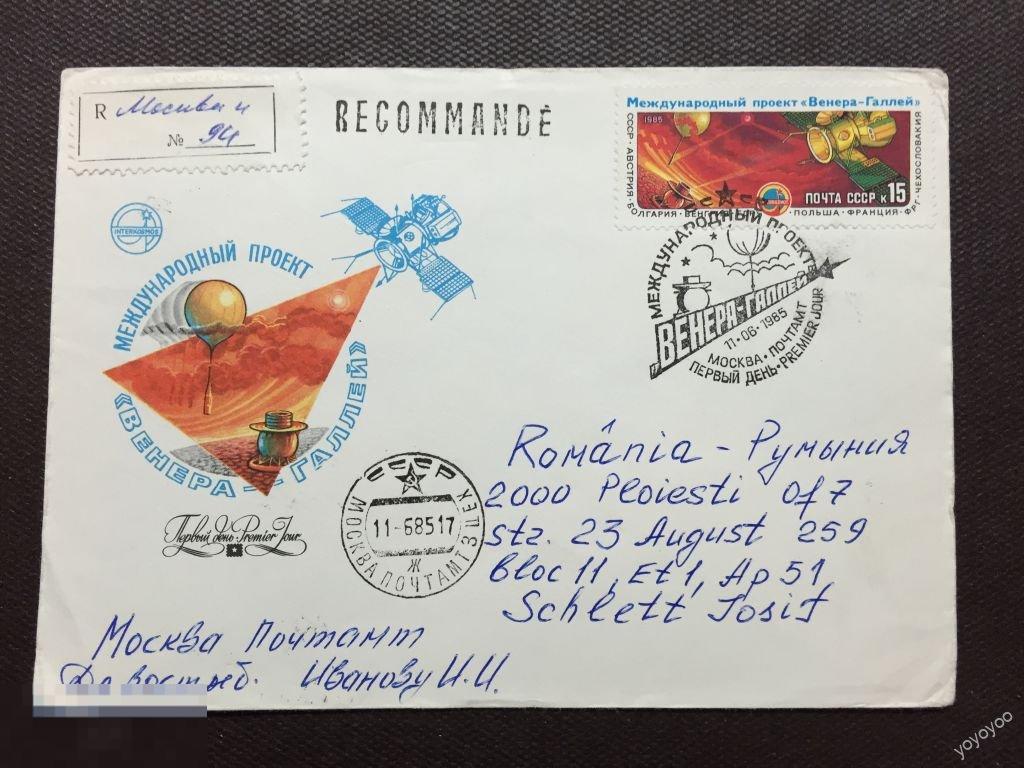 R Москва и
№ 94
RECOMMANDÉ
Международный проект «Венера-Галлей»
1985
СССР · АВСТРИЯ · БОЛГАРИЯ · ПОЛЬША · ФРАНЦИЯ · ФРГ · ЧЕХОСЛОВАКИЯ
ПОЧТА СССР К 15
INTERKOSMOS
МЕЖДУНАРОДНЫЙ ПРОЕКТ
«ВЕНЕРА-ГАЛЛЕЙ»
Первый день Premier Jour
МЕЖДУНАРОДНЫЙ ПРОЕКТ
„ВЕНЕРА-ГАЛЛЕЙ“
11·06·1985
МОСКВА · ПОЧТАМТ
ПЕРВЫЙ ДЕНЬ · PREMIER JOUR
СССР
11-68517
Ж
МОСКВА ПОЧТАМТ 3 ПЕХ
România - Румыния
2000 Ploiesti Of 7
str. 23 August 259
Bloc 11, Et 1, Ap 51
Schlett Iosif
Москва Почтамт
До востреб. Иванову И.И.
yoyoyoo